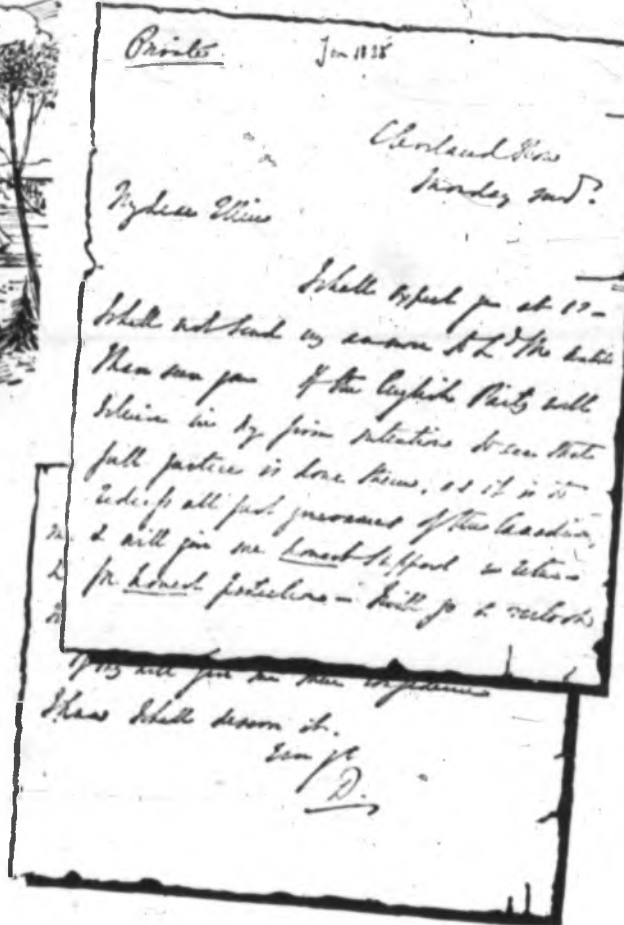 Private Jan 1838
Cleveland Row
Monday
My dear Ellice
I shall expect you at 12 –
I shall not send my answer to Ld M. until
I have seen you If the English Party will
believe in my firm intention to see that
full justice is done them, as it is to
redress all just grievances of the Canadian,
& will give me honest support in return
for honest protection – I will go &
If they will give me their confidence
I know I shall deserve it.
D.